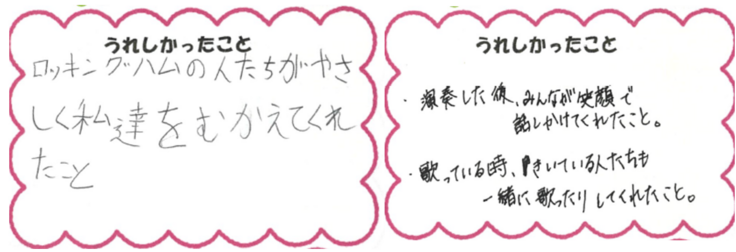 うれしかったこと
ロッキングハムの人たちがやさ
しく私達をむかえてくれ
たこと
うれしかったこと
・演奏した後、みんなが笑顔で
話しかけてくれたこと。
・歌っている時、きいている人たちも
一緒に歌ったりしてくれたこと。